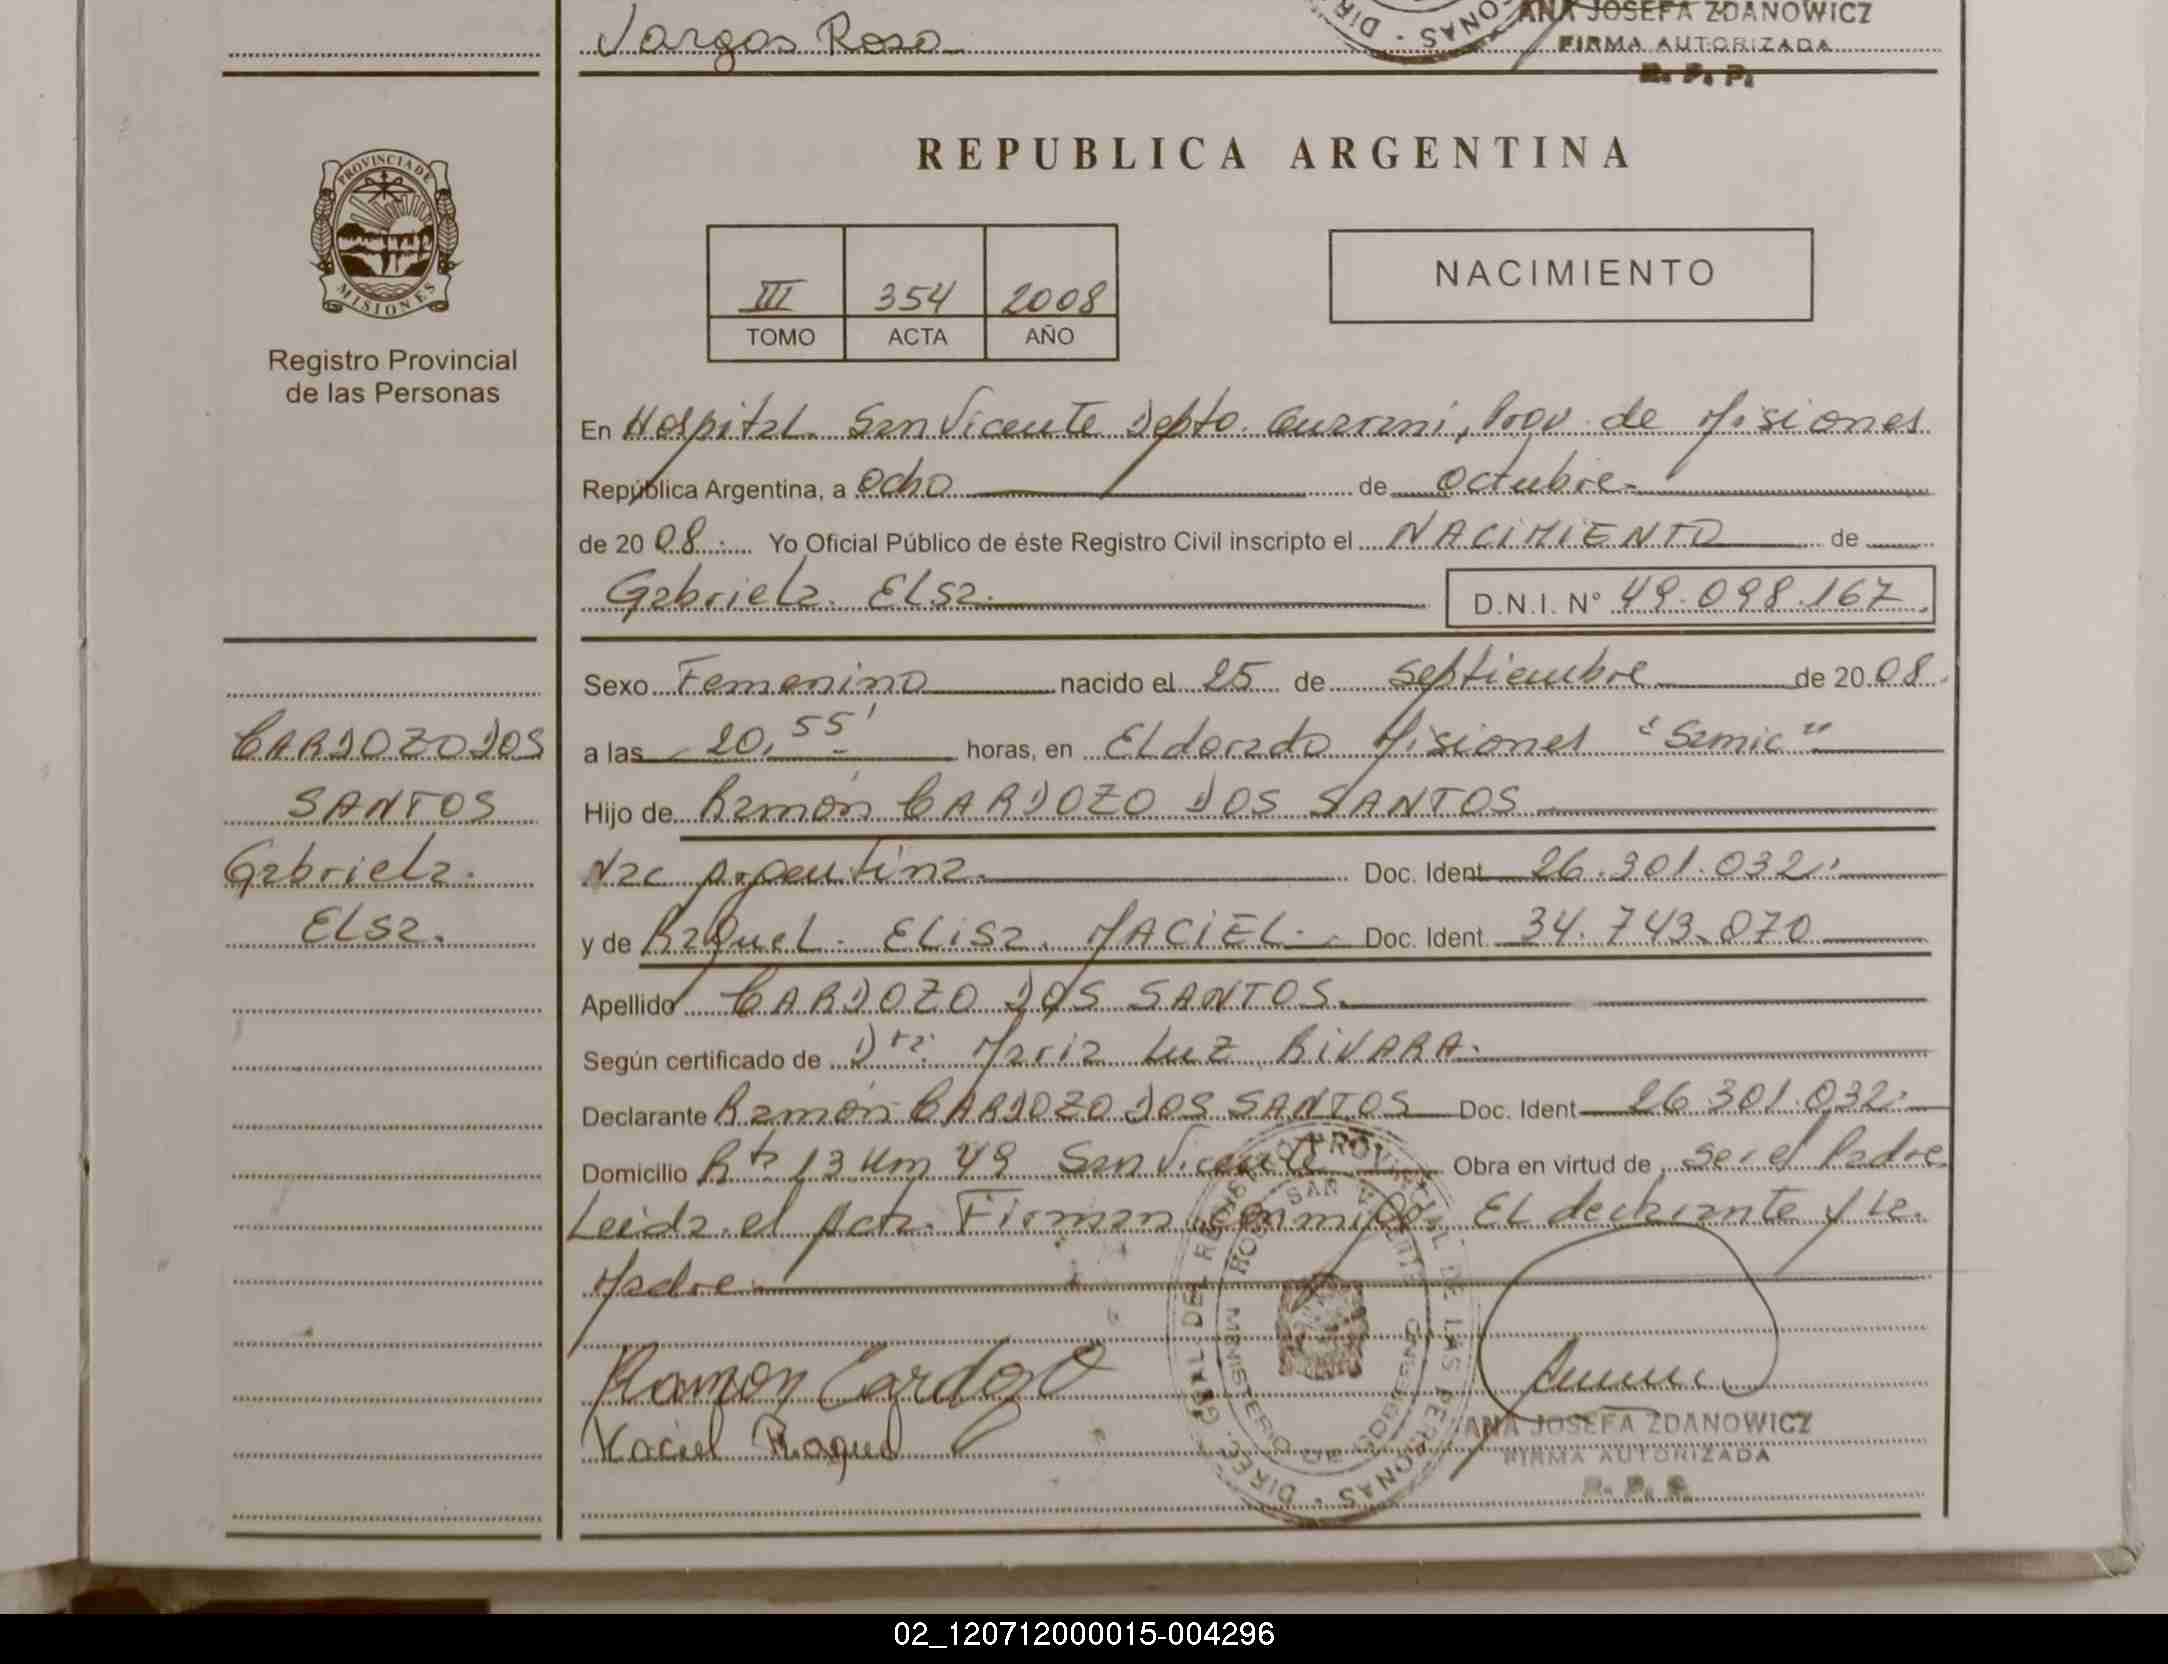 Vargas Rosa
ANA JOSEFA ZDANOWICZ
FIRMA AUTORIZADA
R. P. P.
PROVINCIA DE
MISIONES
Registro Provincial
de las Personas
REPUBLICA ARGENTINA
III 354 2008
TOMO ACTA AÑO
NACIMIENTO
En Hospital San Vicente Depto. Guarani, Prov. de Misiones
República Argentina, a ocho de octubre
de 2008. Yo Oficial Público de éste Registro Civil inscripto el NACIMIENTO de
Gabriela Elsa. D.N.I. N° 49.098.167
Sexo Femenino nacido el 25 de Septiembre de 2008.
a las 20,55' horas, en Eldorado Misiones "Samic"
Hijo de Ramón CARDOZO DOS SANTOS
Nac Argentina. Doc. Ident 26.301.032
y de Raquel Elisa MACIEL. Doc. Ident. 34.743.070
Apellido CARDOZO DOS SANTOS.
Según certificado de Dra. Maria Luz RIVARA.
Declarante Ramón CARDOZO DOS SANTOS Doc. Ident 26.301.032
Domicilio Rta 13 Km 49 San Vicente Obra en virtud de ser el Padre
Leida el Acta. Firman conmigo, El declarante y la
Madre
Ramon Cardozo
Maciel Raquel
CARDOZO DOS
SANTOS
Gabriela.
Elsa.
ANA JOSEFA ZDANOWICZ
FIRMA AUTORIZADA
02_120712000015-004296